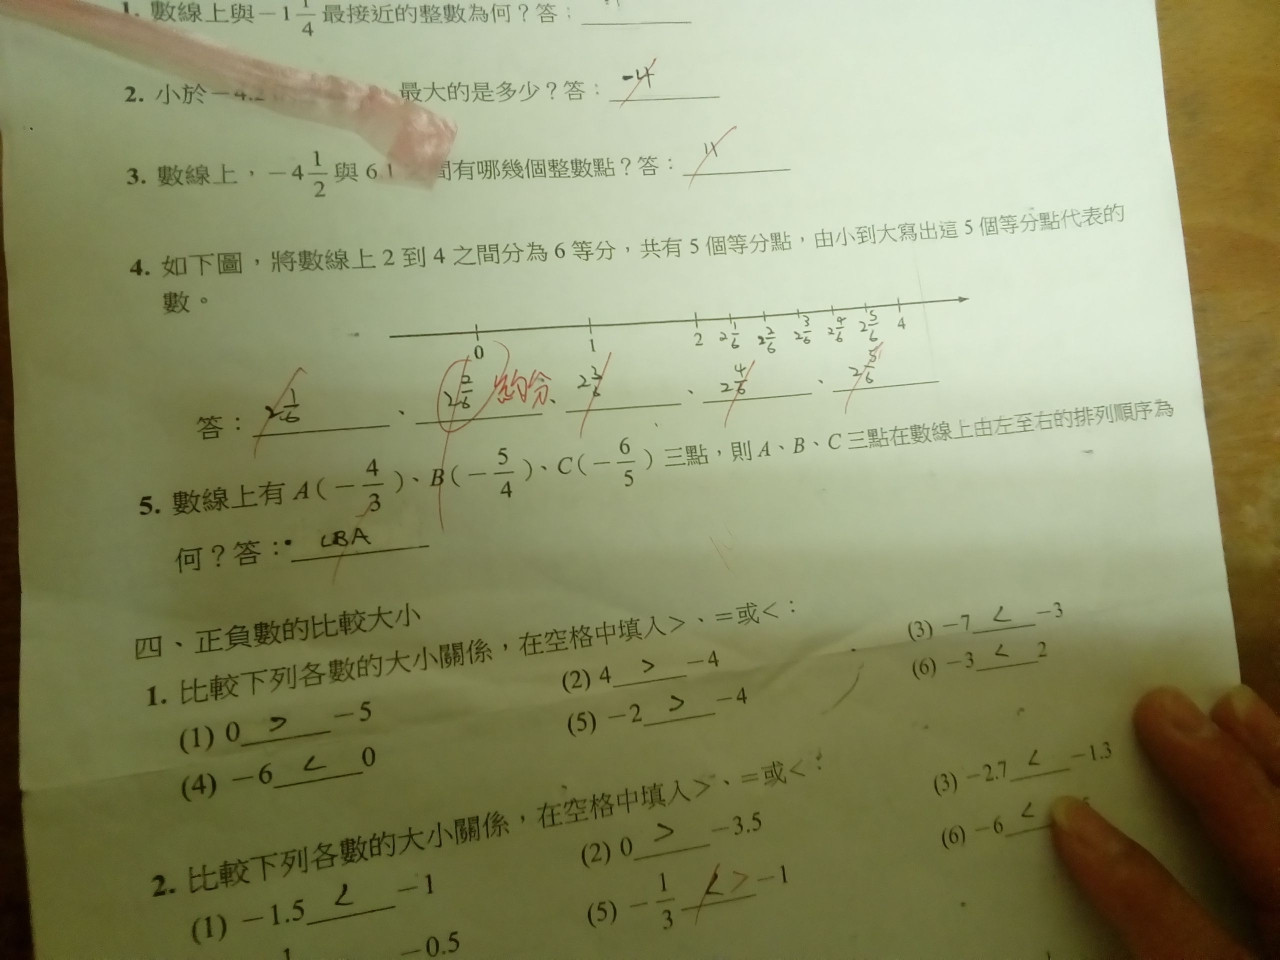 1. 數線上與－1 1/4 最接近的整數為何？答：
2. 小於－4.2 最大的是多少？答： -4
3. 數線上，－4 1/2 與 6.1 間有哪幾個整數點？答： 11
4. 如下圖，將數線上 2 到 4 之間分為 6 等分，共有 5 個等分點，由小到大寫出這 5 個等分點代表的
數。
0 1 2 2 1/6 2 2/6 2 3/6 2 4/6 2 5/6 4
答： 2 1/6 、 2 2/6 約分、 2 3/6 、 2 4/6 、 2 5/6
5. 數線上有 A(－4/3)、B(－5/4)、C(－6/5) 三點，則 A、B、C 三點在數線上由左至右的排列順序為
何？答： CBA
四、正負數的比較大小
1. 比較下列各數的大小關係，在空格中填入＞、＝或＜：
(1) 0 > －5 (2) 4 > －4 (3) －7 < －3
(4) －6 < 0 (5) －2 > －4 (6) －3 < 2
2. 比較下列各數的大小關係，在空格中填入＞、＝或＜：
(1) －1.5 < －1 (2) 0 > －3.5 (3) －2.7 < －1.3
(5) －1/3 < > －1 (6) －6 <
－0.5